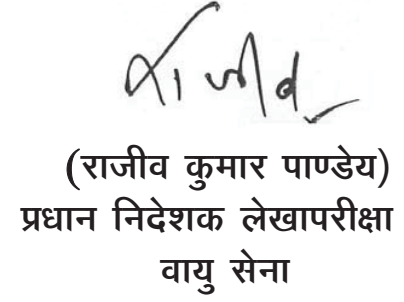 राजीव
(राजीव कुमार पाण्डेय)
प्रधान निदेशक लेखापरीक्षा
वायु सेना